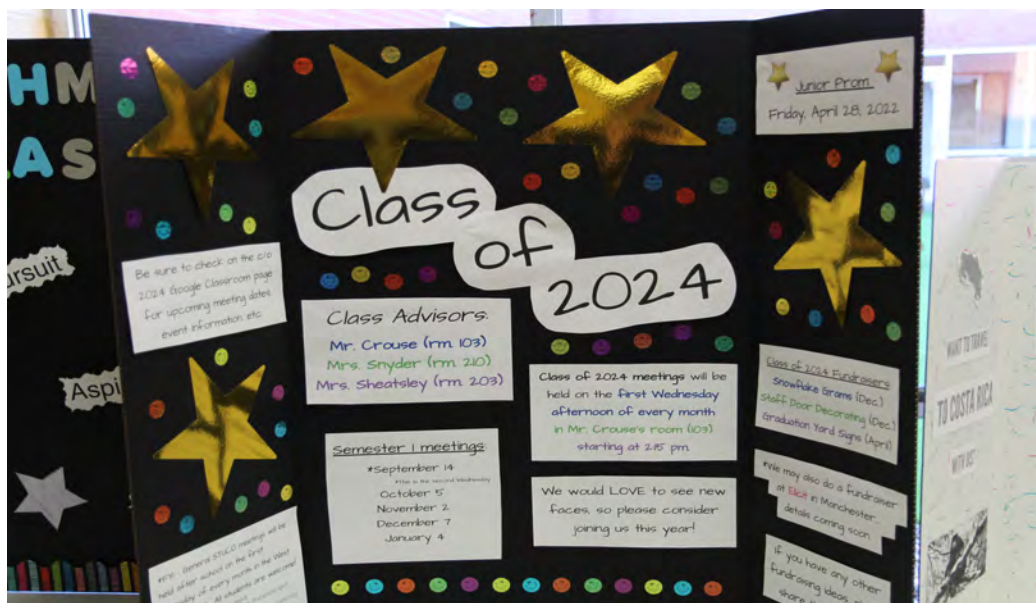 HM
AS
ursuit
Aspi
Be sure to check on the c/o
2024 Google Classroom page
for upcoming meeting dates,
event information, etc.
*FYI - General STUCO meetings will be
held after school on the first
day of every month in the West
All students are welcome!
Class
of
2024
Class Advisors:
Mr. Crouse (rm. 103)
Mrs. Snyder (rm. 210)
Mrs. Sheatsley (rm. 203)
Semester 1 meetings:
*September 14
*This is the second Wednesday
October 5
November 2
December 7
January 4
Class of 2024 meetings will be
held on the first Wednesday
afternoon of every month
in Mr. Crouse's room (103)
starting at 2:15 pm.
We would LOVE to see new
faces, so please consider
joining us this year!
Junior Prom
Friday, April 28, 2022
Class of 2024 Fundraisers
Snowflake Grams (Dec.)
Staff Door Decorating (Dec.)
Graduation Yard Signs (April)
*We may also do a fundraiser
at Elicit in Manchester...
details coming soon
If you have any other
fundraising ideas,
share
WANT TO TRAVEL
TO COSTA RICA
WITH US